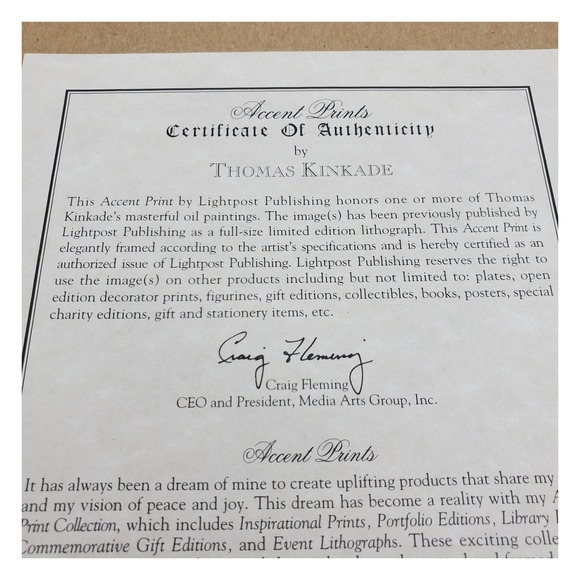 Accent Prints
Certificate Of Authenticity
by
THOMAS KINKADE
This Accent Print by Lightpost Publishing honors one or more of Thomas
Kinkade's masterful oil paintings. The image(s) has been previously published by
Lightpost Publishing as a full-size limited edition lithograph. This Accent Print is
elegantly framed according to the artist's specifications and is hereby certified as an
authorized issue of Lightpost Publishing. Lightpost Publishing reserves the right to
use the image(s) on other products including but not limited to: plates, open
edition decorator prints, figurines, gift editions, collectibles, books, posters, special
charity editions, gift and stationery items, etc.
Craig Fleming
Craig Fleming
CEO and President, Media Arts Group, Inc.
Accent Prints
It has always been a dream of mine to create uplifting products that share my
and my vision of peace and joy. This dream has become a reality with my
Print Collection, which includes Inspirational Prints, Portfolio Editions, Library
Commemorative Gift Editions, and Event Lithographs. These exciting colle